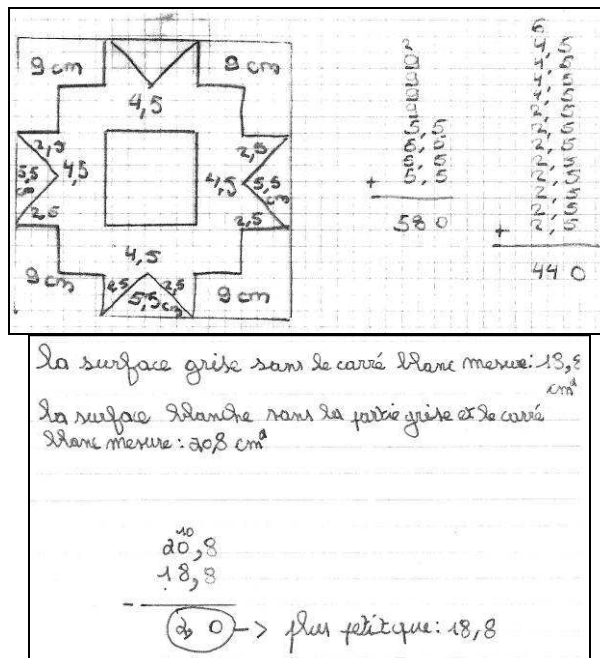 9 cm 9 cm
4,5
2,5 2,5
5,5 cm 4,5 4,5 5,5 cm
2,5 2,5
4,5
9 cm 2,5 2,5 9 cm
5,5 cm
5,5
5,5
5,5
+ 5,5
580
2,5
2,5
2,5
2,5
2,5
2,5
+ 2,5
440
la surface grise sans le carré blanc mesure: 18,8 cm²
la surface blanche sans la partie grise et le carré
blanc mesure: 20,8 cm²
10
20,8
18,8
-
2,0 -> plus petit que: 18,8